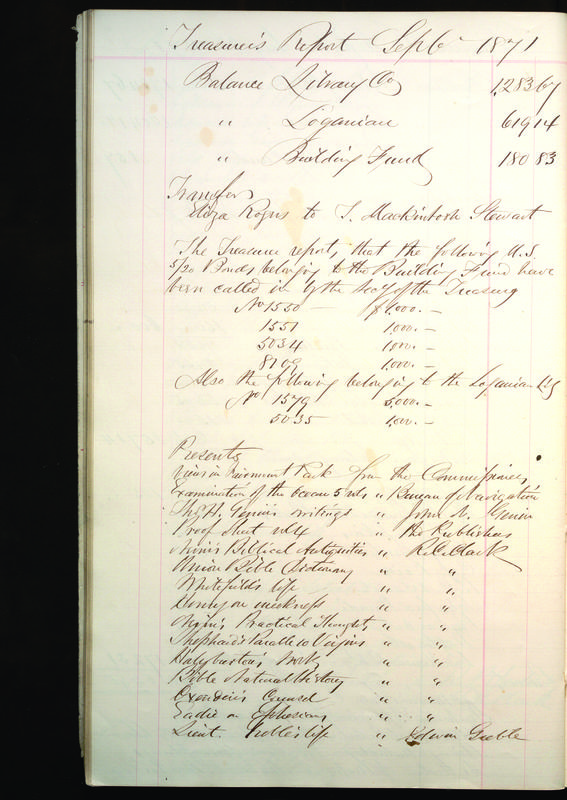 Treasurer's Report Sept 6 1871
Balance Library Co 1,283 67
" Loganian 619 14
" Building Fund 180 83
Transfer
Eliza Rogers to T. Mackintosh Stewart
The Treasurer report, that the following U.S.
5/20 Bonds, belonging to the Building Fund have
been called in by the Secy of the Treasury
No 1550 – $1,000. –
1551 1,000. –
5034 1,000. –
8109 1,000. –
Also the following belonging to the Loganian
No 1579 5,000. –
5035 1,000. –
Presents
Views in Fairmount Park from the Commissioners
Examination of the Oceans 5 vols " Bureau of Navigation
Thos H. Genin's writings " John N. Genin
Proof Sheet vol 4 " the Publishers
Nevin's Biblical Antiquities " R.C. Clark
Union Bible Dictionary " "
Whitefield's life " "
Henry on meekness " "
Practical Thoughts " "
Shephard's Parable 10 Virgins " "
Halyburton's Work " "
Bible Natural History " "
Oxenden's Counsel " "
Eadie on Ephesians " "
Lieut. Greble's life " Edwin Greble